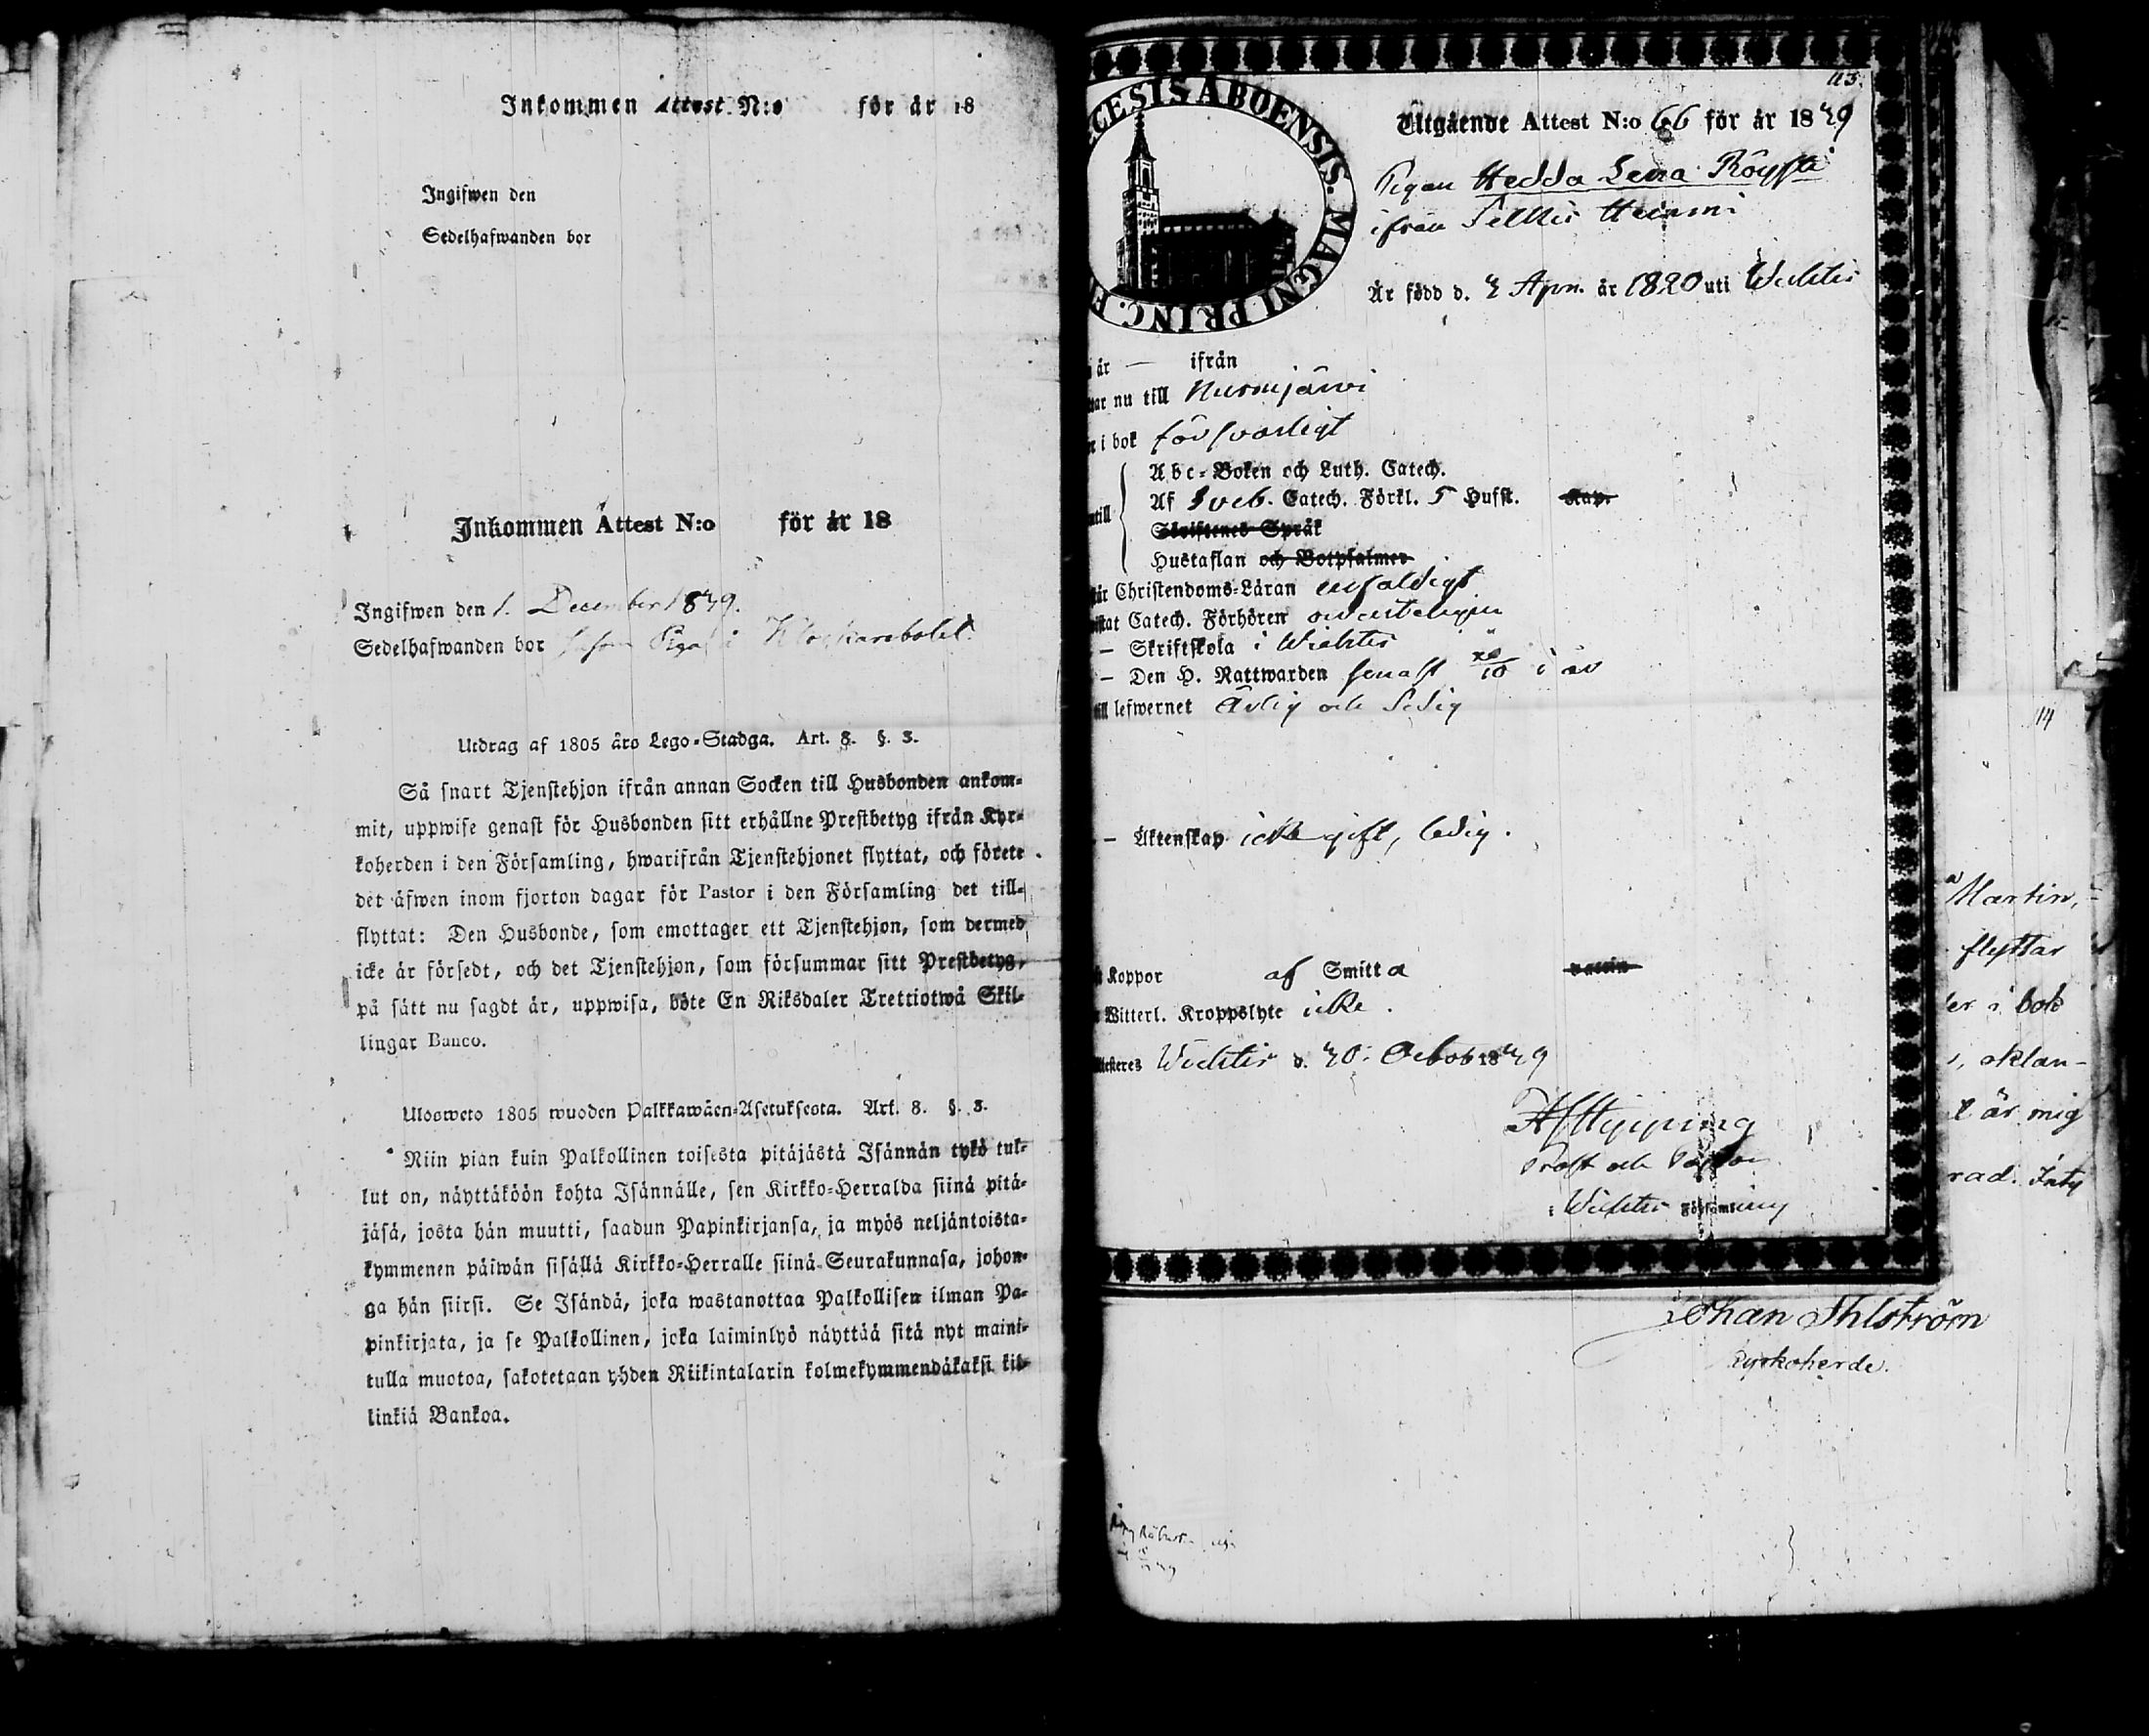 Inkommen Attest N:o för år 18
Ingifwen den
Sedelhafwanden bor
Inkommen Attest N:o för år 18
Ingifwen den 1. December 1849.
Sedelhafwanden bor såsom Piga i Klockarebolet.
Utdrag af 1805 års Lego-Stadga. Art. 8. §. 3.
Så snart Tjenstehjon ifrån annan Socken till Husbonden ankom-
mit, uppwise genast för Husbonden sitt erhållne Prestbetyg ifrån Kyr-
koherden i den Församling, hwarifrån Tjenstehjonet flyttat, och förete
det äfwen inom fjorton dagar för Pastor i den Församling det till-
flyttat: Den Husbonde, som emottager ett Tjenstehjon, som dermed
icke är försedt, och det Tjenstehjon, som försummar sitt Prestbetyg,
på sätt nu sagdt är, uppwisa, böte En Riksdaler Trettiotwå Skil-
lingar Banco.
Ulosweto 1805 wuoden Palkkawäen-Asetuksesta. Art. 8. §. 3.
Niin pian kuin Palkollinen toisesta pitäjästä Isännän tykö tul-
lut on, näyttäköön kohta Isännälle, sen Kirkko-Herralda siinä pitä-
jäsä, josta hän muutti, saadun Papinkirjansa, ja myös neljäntoista-
kymmenen päiwän sisällä Kirkko-Herralle siinä Seurakunnasa, johon-
ga hän siirsi. Se Isändä, joka wastanottaa Palkollisen ilman Pa-
pinkirjata, ja se Palkollinen, joka laiminlyö näyttää sitä nyt maini-
tulla muotoa, sakotetaan yhden Riikintalarin kolmekymmendäkaksi kil-
linkiä Bankoa.
113.
CESIS ABOENSIS. MAGNI PRINC. F
Utgående Attest N:o 66 för år 1849
Pigan Hedda Lena Röysti
ifrån Selkis
Är född d. 4 Apr. år 1820 uti Wichtis
år — ifrån
nu till Nurmijärwi
i bok försvarligt
Abc-Boken och Luth. Catech.
Af Sveb. Catech. Förkl. 5 Hufst. Kap.
Skriftenes Språk
Hustaflan och Botpsalmer
Christendoms-Läran enfaldigt
Catech. Förhören
— Skriftskola i Wichtis
— Den H. Nattwarden senast i år
lefwernet Ärlig och Sedig
— Äktenskap icke gift, ledig.
Koppor af Smitta
Witterl. Kroppslyte icke.
Wichtis d. 30. Octob 1849
Prost och Pastor
i Wichtis Församling
14
Martin,
flyttar
i bok
är mig
Johan Ihlström
Kyrkoherde.